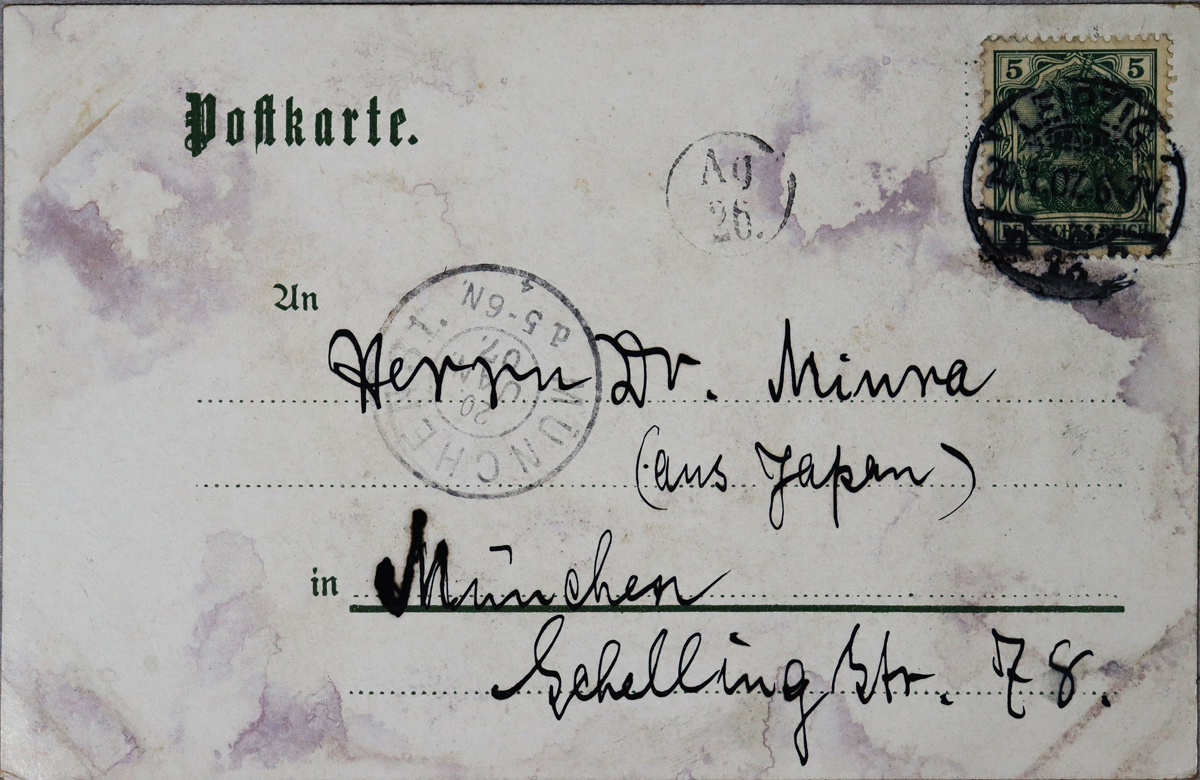 Postkarte.
5 5
LEIPZIG
DEUTSCHES REICH
Ag
26.
MÜNCHEN
20 JAN 07
5-6N.
An
Herrn Dr. Miura
(aus Japan)
in München
Schelling Str. 78.